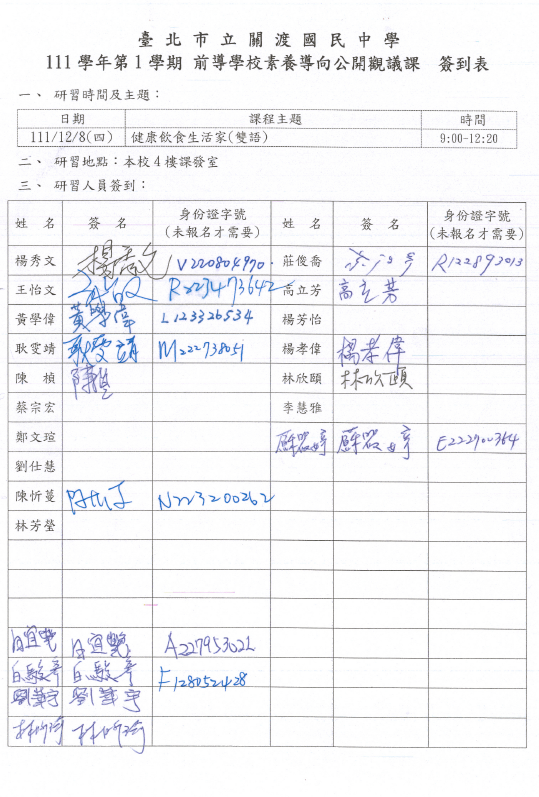 臺北市立關渡國民中學
111 學年第 1 學期 前導學校素養導向公開觀議課 簽到表
一、 研習時間及主題：
日期 課程主題 時間
111/12/8(四) 健康飲食生活家(雙語) 9:00-12:20
二、 研習地點：本校 4 樓課發室
三、 研習人員簽到：
姓 名 簽 名 身份證字號 (未報名才需要) 姓 名 簽 名 身份證字號 (未報名才需要)
楊秀文 楊秀文 V220804970 莊俊喬 R122893013
王怡文 R223473642 高立芳 高立芳
黃學偉 黃學偉 L123326534 楊芳怡
耿雯靖 耿雯靖 M222738051 楊孝偉 楊孝偉
陳 楨 陳楨 林欣頤 林欣頤
蔡宗宏 李慧雅
鄭文瑄 E222900364
劉仕慧
陳忻蔓 N223200262
林芳瑩
A227953021
白駿彥 白駿彥 F128052428
劉華宇 劉華宇